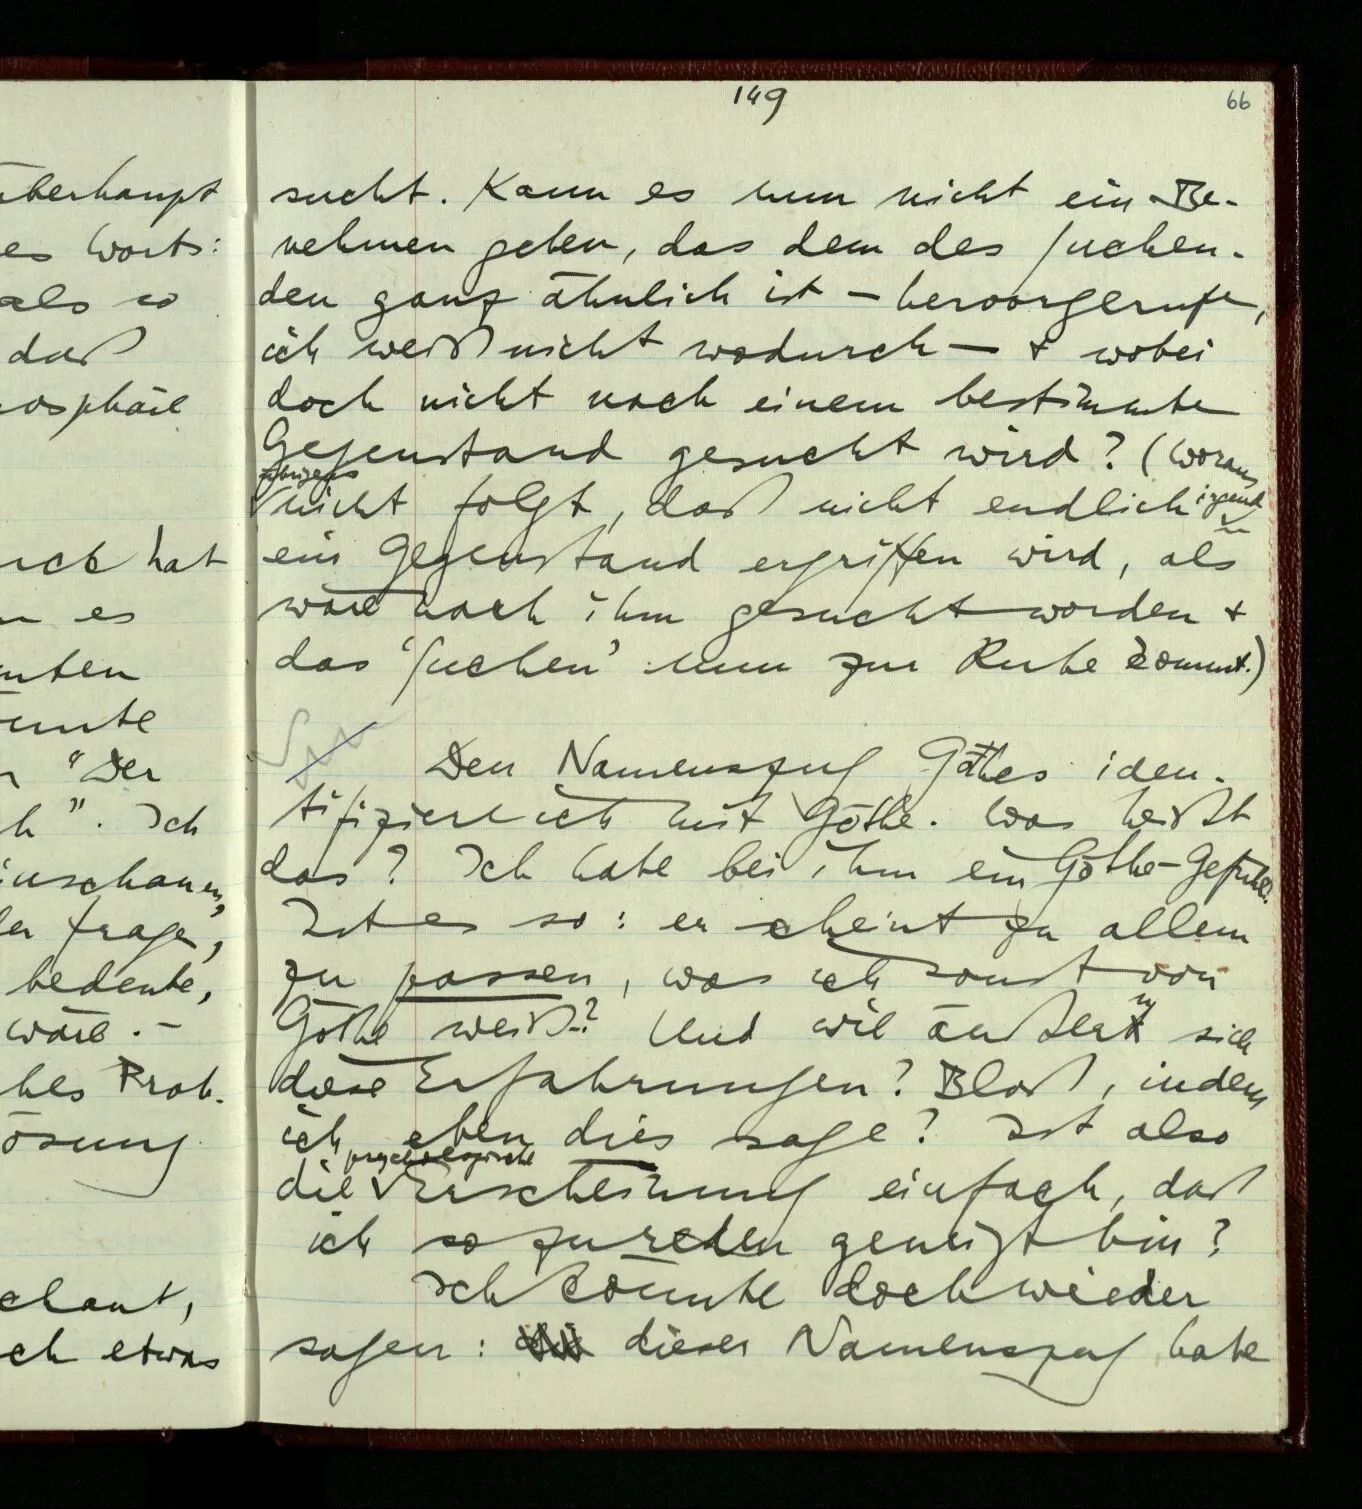 149
66
überhaupt
es Worts:
als so
daß
osphäre
hat
es
nten
"Der
h". Ich
inschauen,
er Frage,
bedeute,
wäre. –
hes Prob-
ösung
chaut,
ch etwas
sucht. Kann es nun nicht ein Be-
nehmen geben, das dem des Suchen-
den ganz ähnlich ist – hervorgerufen,
ich weiß nicht wodurch – + wobei
doch nicht nach einem bestimmten
Gegenstand gesucht wird? (Woraus
übrigens
nicht folgt, daß nicht endlich irgend
ein Gegenstand ergriffen wird, als
wäre nach ihm gesucht worden +
das 'Suchen' nun zur Ruhe kommt.)
Den Namenszug Göthes iden-
tifiziere ich mit Göthe. Was heißt
das? Ich habe bei ihm ein Göthe-Gefühl.
Ist es so: er scheint zu allem
zu passen, was ich sonst von
Göthe weiß–? Und wie äußern sich
diese Erfahrungen? Bloß, indem
ich eben dies sage? Ist also
psychologische
die Erscheinung einfach, daß
ich so zu reden geneigt bin?
Ich könnte doch wieder
sagen: dieser Namenszug habe